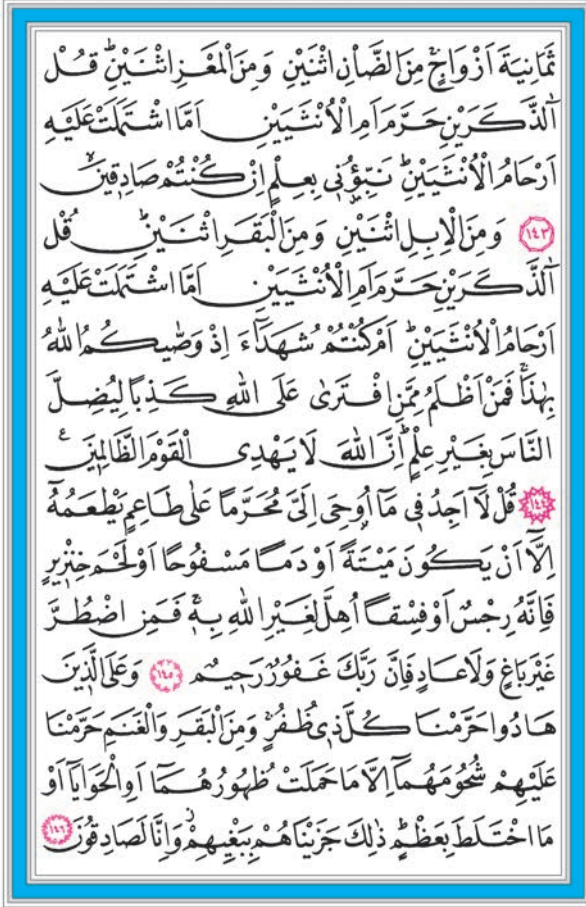 ثَمَانِيَةَ اَزْوَاجٍۚ مِنَ الضَّأْنِ اثْنَيْنِ وَمِنَ الْمَعْزِ اثْنَيْنِۜ قُلْ
آٰلذَّكَرَيْنِ حَرَّمَ اَمِ الْاُنْثَيَيْنِ اَمَّا اشْتَمَلَتْ عَلَيْهِ
اَرْحَامُ الْاُنْثَيَيْنِۜ نَبِّؤُ۫نٖي بِعِلْمٍ اِنْ كُنْتُمْ صَادِقٖينَۙ
﴿١٤٣﴾ وَمِنَ الْاِبِلِ اثْنَيْنِ وَمِنَ الْبَقَرِ اثْنَيْنِۜ قُلْ
آٰلذَّكَرَيْنِ حَرَّمَ اَمِ الْاُنْثَيَيْنِ اَمَّا اشْتَمَلَتْ عَلَيْهِ
اَرْحَامُ الْاُنْثَيَيْنِۜ اَمْ كُنْتُمْ شُهَدَٓاءَ اِذْ وَصّٰيكُمُ اللّٰهُ
بِهٰذَاۚ فَمَنْ اَظْلَمُ مِمَّنِ افْتَرٰى عَلَى اللّٰهِ كَذِبًا لِيُضِلَّ
النَّاسَ بِغَيْرِ عِلْمٍۜ اِنَّ اللّٰهَ لَا يَهْدِى الْقَوْمَ الظَّالِمٖينَ ࣖ
﴿١٤٤﴾ قُلْ لَٓا اَجِدُ فٖي مَٓا اُو۫حِيَ اِلَيَّ مُحَرَّمًا عَلٰى طَاعِمٍ يَطْعَمُهُٓ
اِلَّٓا اَنْ يَكُونَ مَيْتَةً اَوْ دَمًا مَسْفُوحًا اَوْ لَحْمَ خِنْزٖيرٍ
فَاِنَّهُ رِجْسٌ اَوْ فِسْقًا اُهِلَّ لِغَيْرِ اللّٰهِ بِهٖۚ فَمَنِ اضْطُرَّ
غَيْرَ بَاغٍ وَلَا عَادٍ فَاِنَّ رَبَّكَ غَفُورٌ رَحٖيمٌ ﴿١٤٥﴾ وَعَلَى الَّذٖينَ
هَادُوا حَرَّمْنَا كُلَّ ذٖي ظُفُرٍۚ وَمِنَ الْبَقَرِ وَالْغَنَمِ حَرَّمْنَا
عَلَيْهِمْ شُحُومَهُمَٓا اِلَّا مَا حَمَلَتْ ظُهُورُهُمَٓا اَوِ الْحَوَايَٓا اَوْ
مَا اخْتَلَطَ بِعَظْمٍۜ ذٰلِكَ جَزَيْنَاهُمْ بِبَغْيِهِمْۘ وَاِنَّا لَصَادِقُونَ ﴿١٤٦﴾